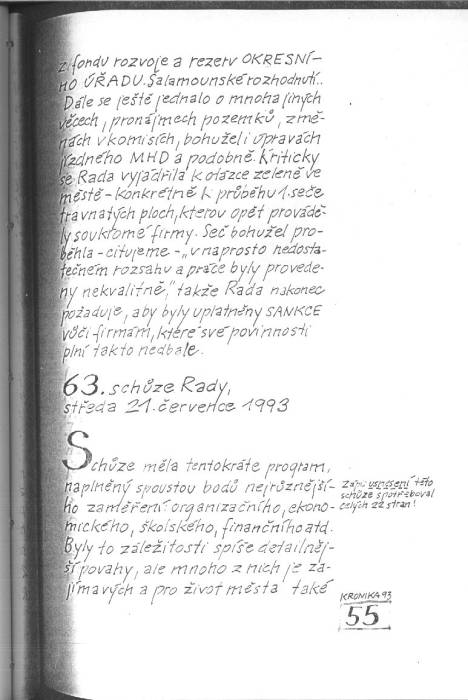 z fondu rozvoje a rezerv OKRESNÍ-
HO ÚŘADU. Šalamounské rozhodnutí..
Dále se ještě jednalo o mnoha jiných
věcech, pronájmech pozemků, změ-
nách v komisích, bohužel i úpravách
jízdného MHD a podobně. Kriticky
se Rada vyjádřila k otázce zeleně ve
městě - konkrétně k průběhu 1. seče
travnatých ploch, kterou opět provádě-
ly soukromé firmy. Seč bohužel pro-
běhla - citujeme - „v naprosto nedosta-
tečném rozsahu a práce byly provede-
ny nekvalitně," takže Rada nakonec
požaduje, aby byly uplatněny SANKCE
vůči firmám, které své povinnosti
plní takto nedbale.
63. schůze Rady,
středa 21. července 1993
Schůze měla tentokráte program,
naplněný spoustou bodů nejrůznější-
ho zaměření organizačního, ekono-
mického, školského, finančního atd.
Byly to záležitosti spíše detailněj-
ší povahy, ale mnoho z nich je za-
jímavých a pro život města také
Zápis usnesení této
schůze spotřeboval
celých 22 stran!
KRONIKA 93
55